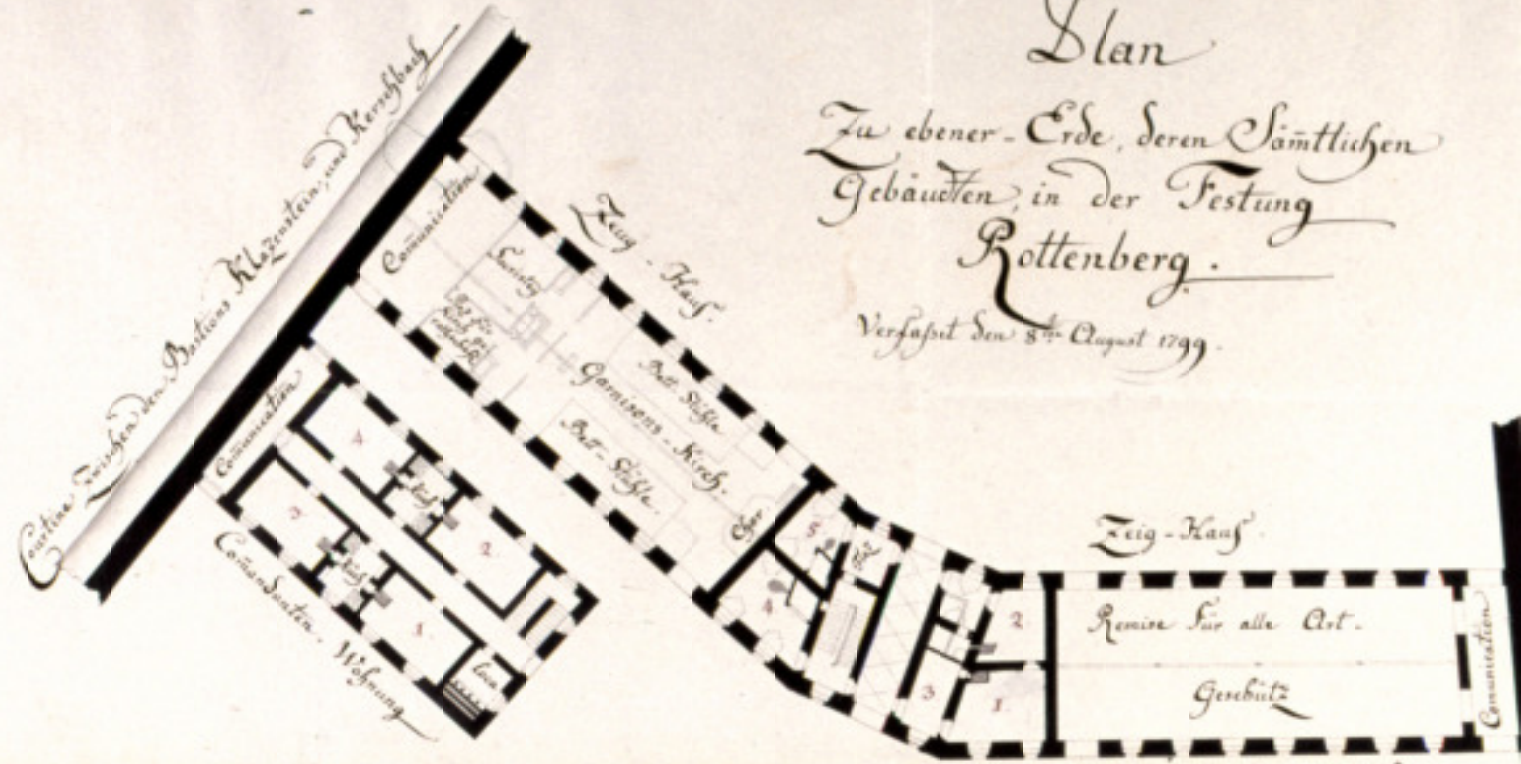 Plan
Zu ebener-Erde, deren Sam̄tlichen
Gebäudten, in der Festung
Rottenberg.
Verfasst den 8ten August 1799.
Courtine Zwischen den Bastions Klozenstein, und Kerschbach
Com̄unication
Zeug-Hauß.
Sacristey
Garnisons-Kirch.
Bett-Stühle
Bett-Stühle.
Chor
Com̄unication
4
Kuch
2
3
Kuch
1
Com̄endanten-Wohnung
5
4
3
2
1
Zeig-Hauß.
Remise Für alle Art.
Geschütz
Com̄unication